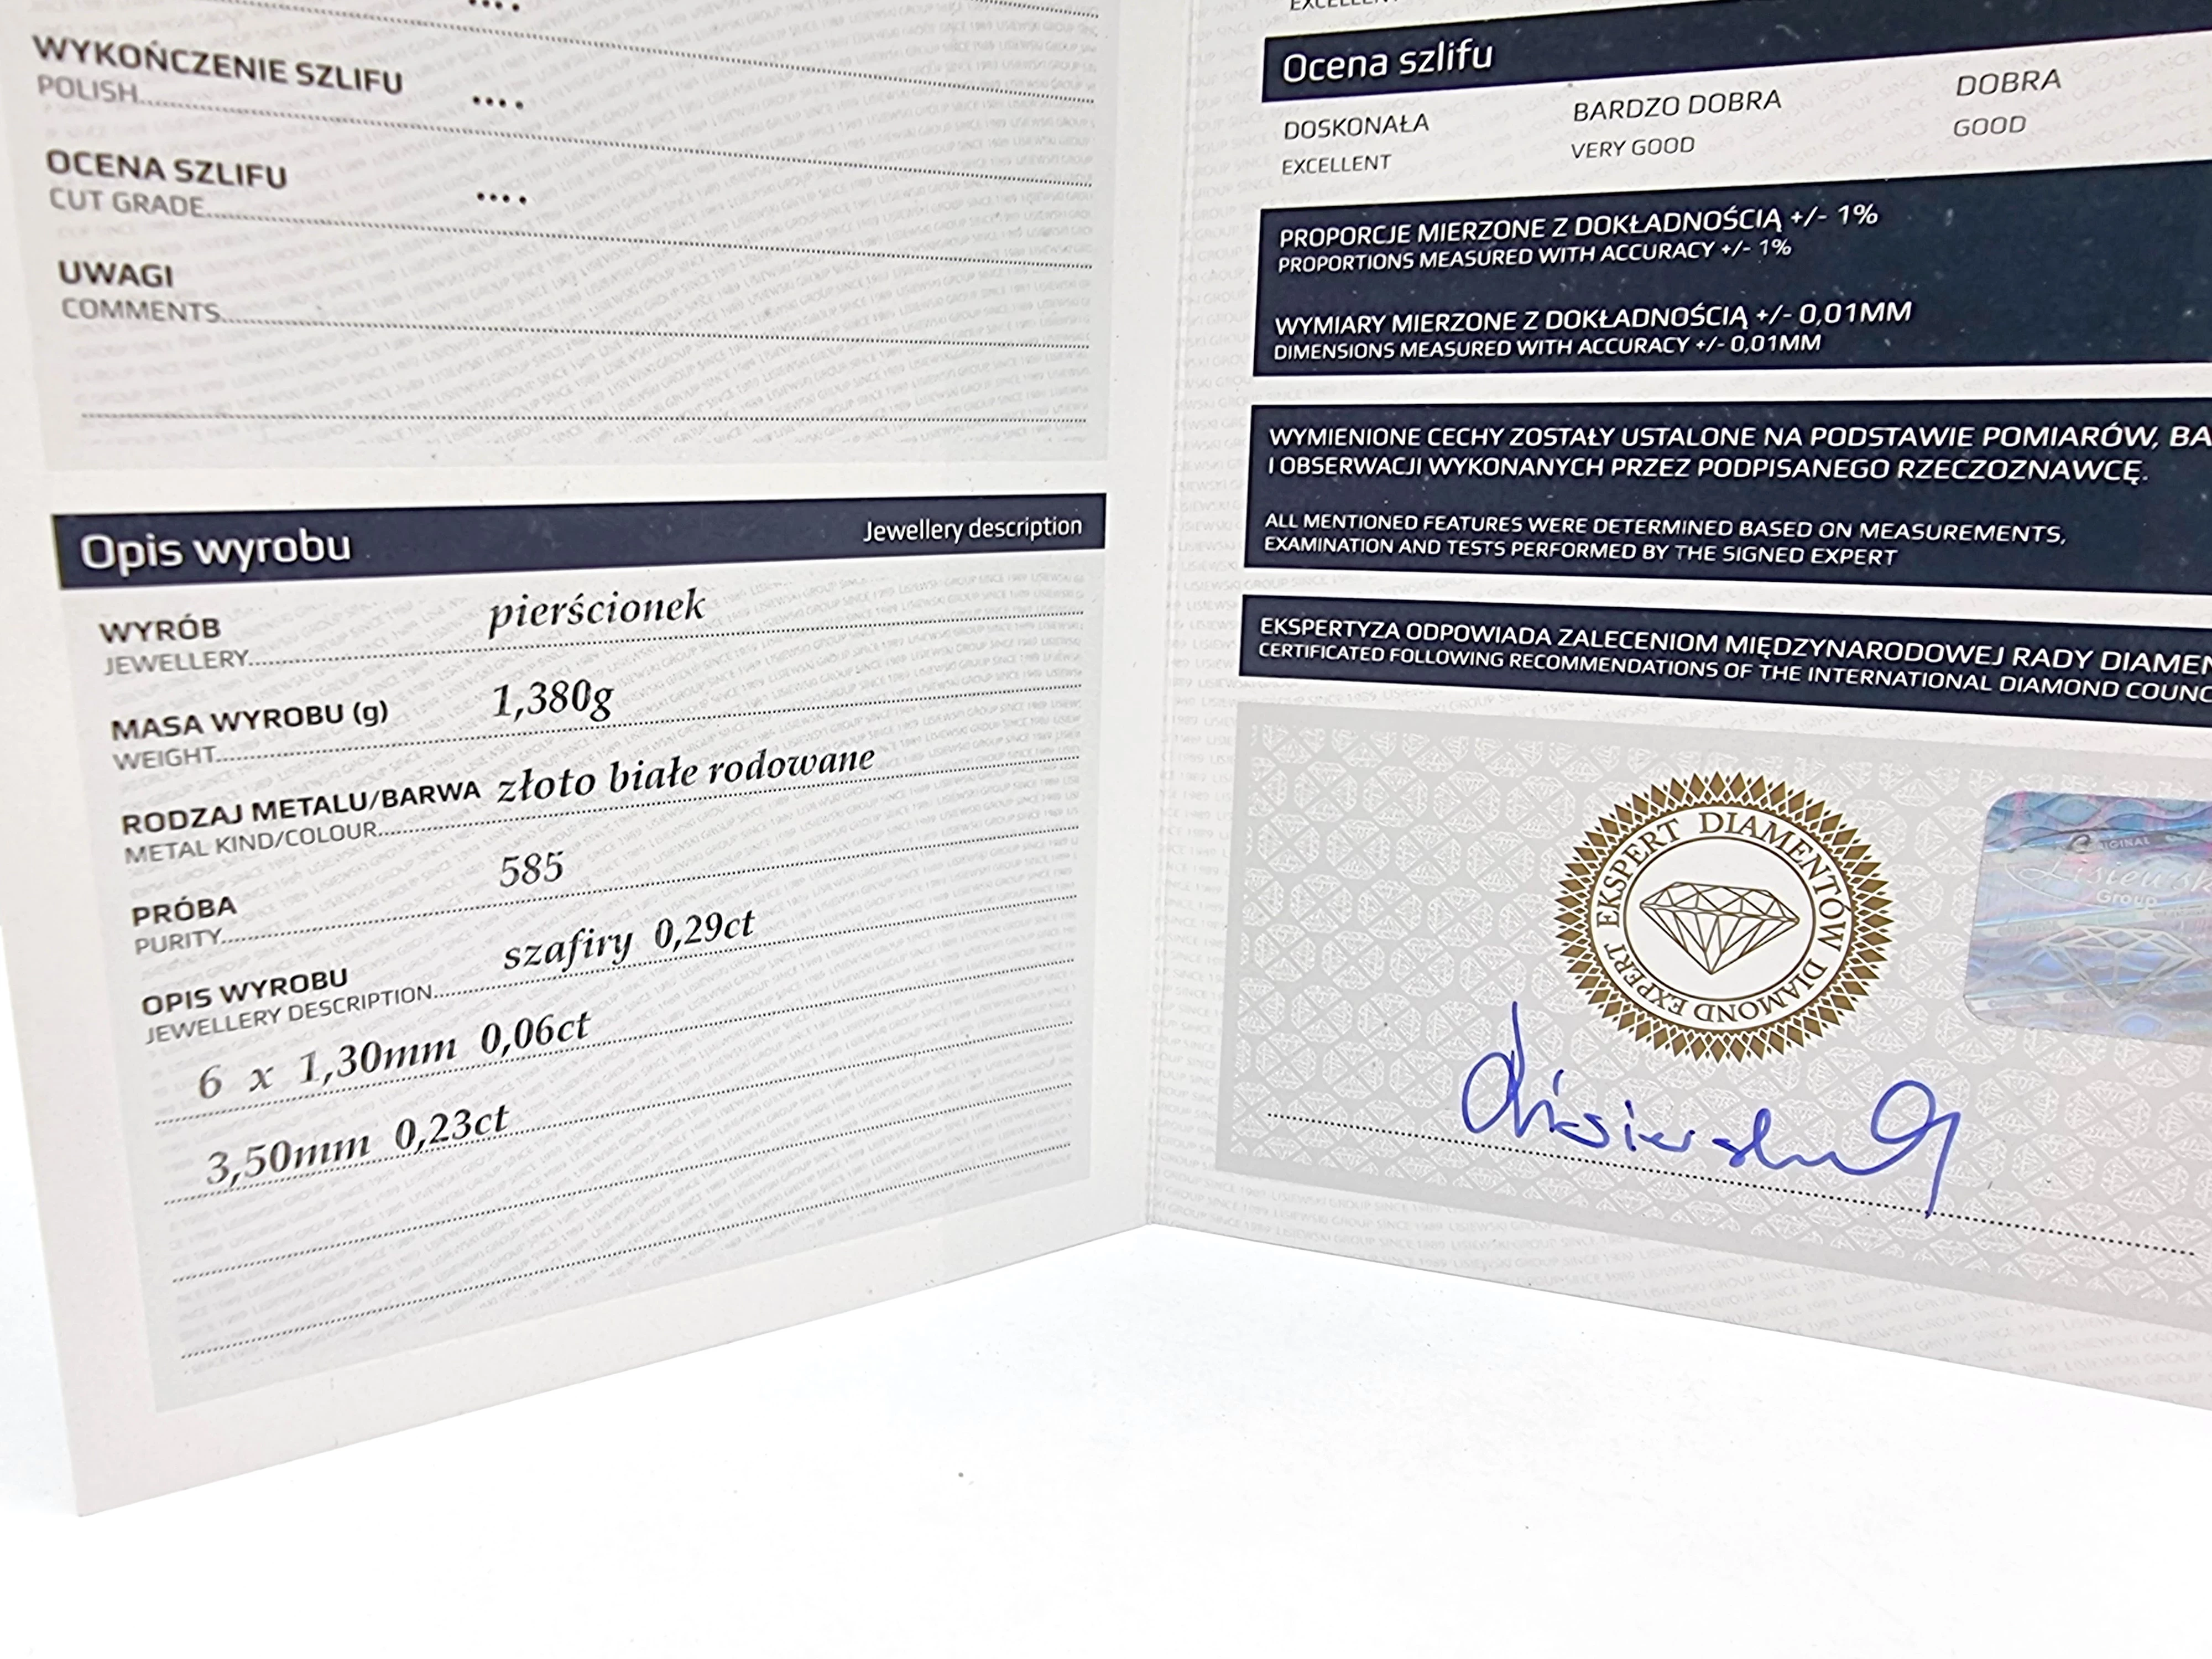 ....
WYKOŃCZENIE SZLIFU ....
POLISH
OCENA SZLIFU ....
CUT GRADE
UWAGI
COMMENTS
Opis wyrobu Jewellery description
WYRÓB pierścionek
JEWELLERY
MASA WYROBU (g) 1,380g
WEIGHT
RODZAJ METALU/BARWA złoto białe rodowane
METAL KIND/COLOUR
PRÓBA 585
PURITY
OPIS WYROBU szafiry 0,29ct
JEWELLERY DESCRIPTION
6 x 1,30mm 0,06ct
3,50mm 0,23ct
EXCELLENT
Ocena szlifu
DOSKONAŁA BARDZO DOBRA DOBRA
EXCELLENT VERY GOOD GOOD
PROPORCJE MIERZONE Z DOKŁADNOŚCIĄ +/- 1%
PROPORTIONS MEASURED WITH ACCURACY +/- 1%
WYMIARY MIERZONE Z DOKŁADNOŚCIĄ +/- 0,01MM
DIMENSIONS MEASURED WITH ACCURACY +/- 0,01MM
WYMIENIONE CECHY ZOSTAŁY USTALONE NA PODSTAWIE POMIARÓW, BA
I OBSERWACJI WYKONANYCH PRZEZ PODPISANEGO RZECZOZNAWCĘ.
ALL MENTIONED FEATURES WERE DETERMINED BASED ON MEASUREMENTS,
EXAMINATION AND TESTS PERFORMED BY THE SIGNED EXPERT
EKSPERTYZA ODPOWIADA ZALECENIOM MIĘDZYNARODOWEJ RADY DIAMEN
CERTIFICATED FOLLOWING RECOMMENDATIONS OF THE INTERNATIONAL DIAMOND COUNC
EKSPERT DIAMENTÓW
DIAMOND EXPERT
Group